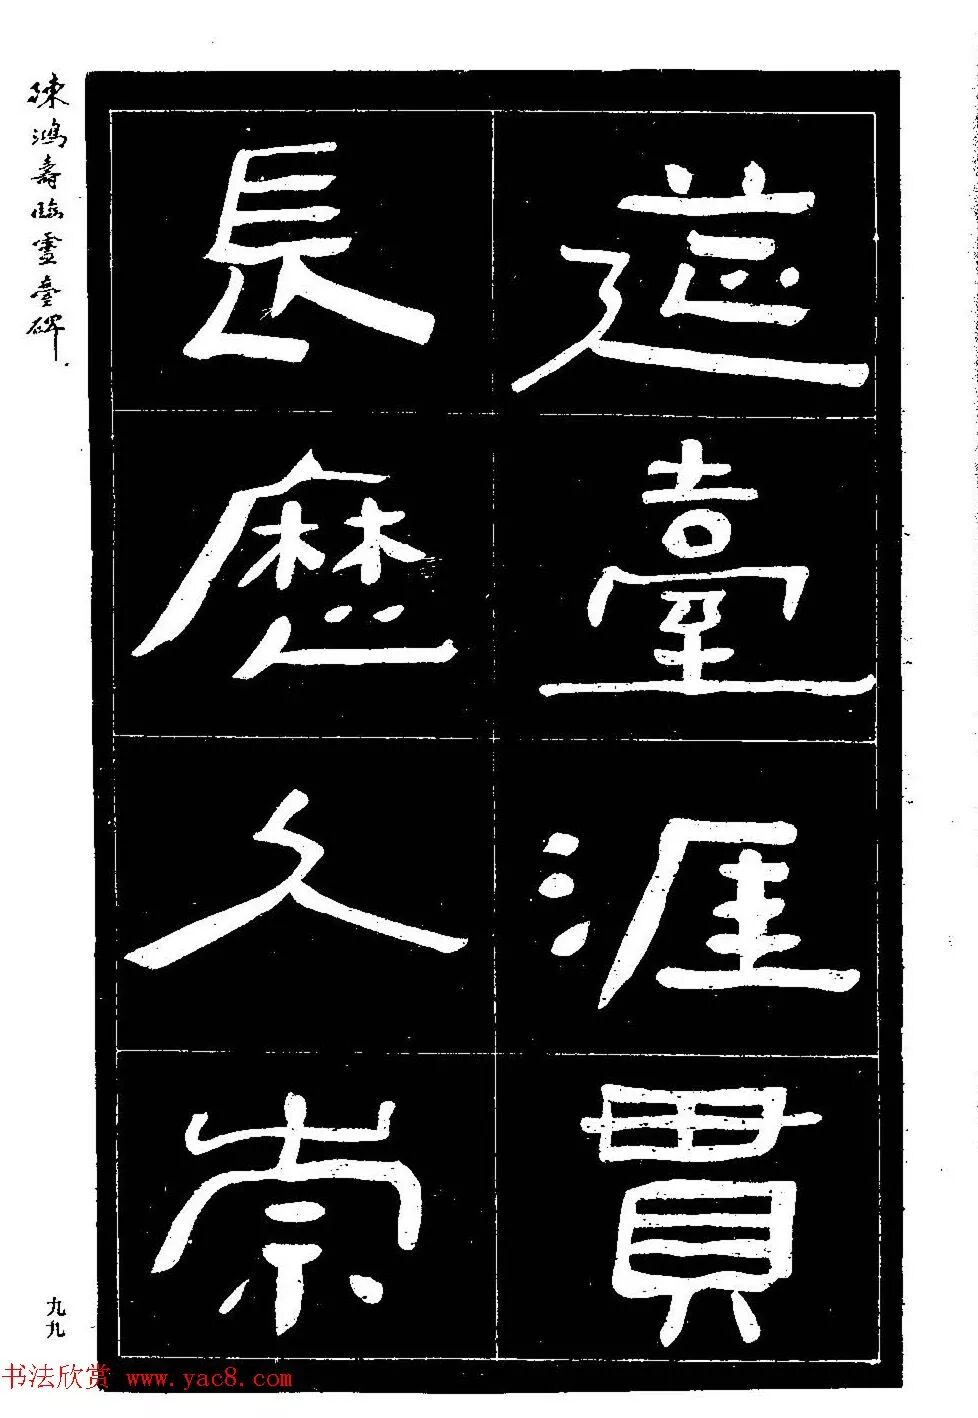 陳鴻壽臨靈臺碑
臺涯貫
長歷久崇
九九
书法欣赏 www.yac8.com